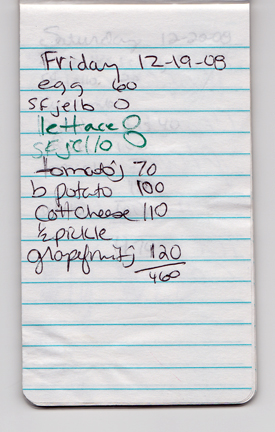 Friday 12-19-08
egg 60
SF jello 0
lettace 0
SF jello 0
tomatoj 70
b potato 100
Cott Cheese 110
½ pickle
grapefruitj 120
460